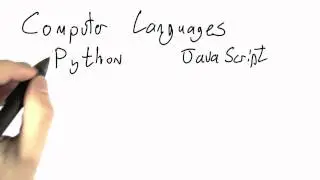 Computer Languages
Python JavaScript